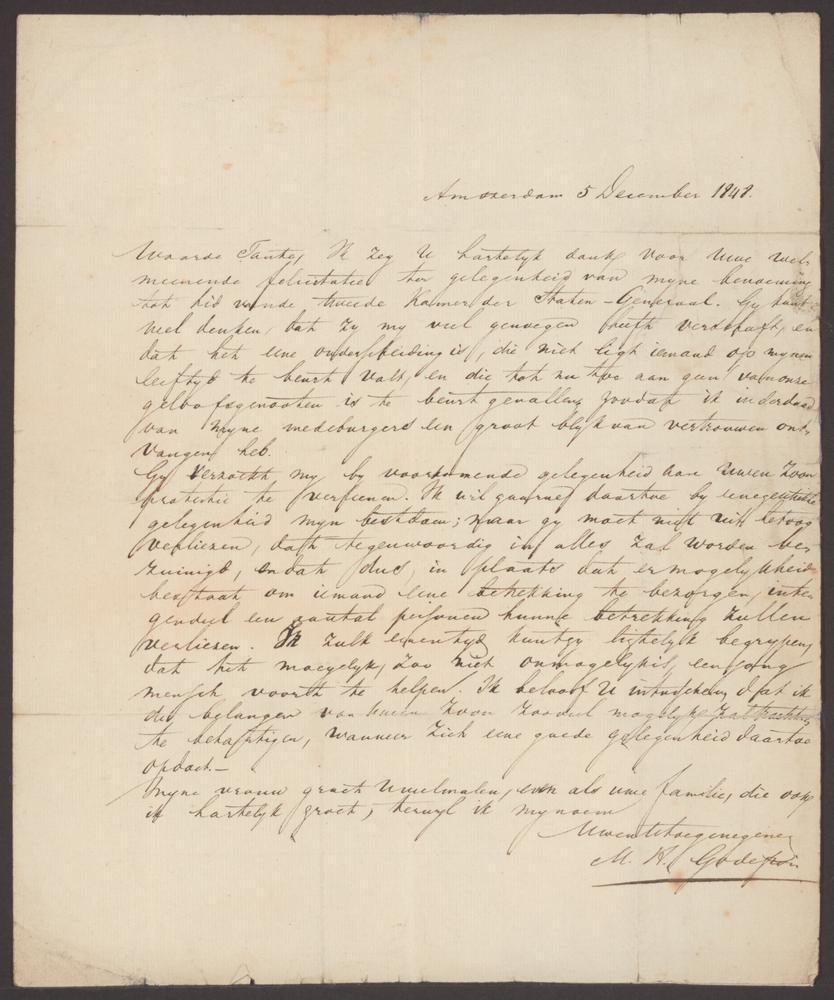 Amsterdam 5 December 1848.
Waarde Tante, Ik zeg U hartelyk dank voor Uwe wel-
meenende felicitatie ter gelegenheid van myne benoeming
tot lid van de tweede Kamer der Staten-Generaal. Gy kunt
wel denken, dat zy my veel genoegen heeft verschaft, en
dat het eene onderscheiding is, die niet ligt iemand op mynen
leeftyd te beurt valt, en die tot nu toe aan geen van onze
geloofsgenooten is te beurt gevallen, zoodat ik inderdaad
van myne medeburgers een groot blyk van vertrouwen ont-
vangen heb.
Gy verzocht my by voorkomende gelegenheid aan Uwen Zoon
protectie te verleenen. Ik wil gaarne daartoe by eene geschikte
gelegenheid myn best doen; maar gy moet niet uit het oog
verliezen, dat tegenwoordig in alles zal worden be-
zuinigd, en dat dus, in plaats dat er mogelykheid
bestaat om iemand eene betrekking te bezorgen, inte-
gendeel een aantal personen hunne betrekking zullen
verliezen. In zulk eenen tyd kunt gy ligtelyk begrypen,
dat het moeyelyk, zoo niet onmogelyk is, een jong
mensch voort te helpen. Ik beloof U intusschen, dat ik
de belangen van Uwen Zoon zooveel mogelyk zal trachten
te behartigen, wanneer zich eene goede gelegenheid daartoe
opdoet.—
Myne vrouw groet U veelmalen, even als uwe familie, die ook
ik hartelyk groet, terwyl ik my noem
Uwen toegenegenen
M. H. Godefroi